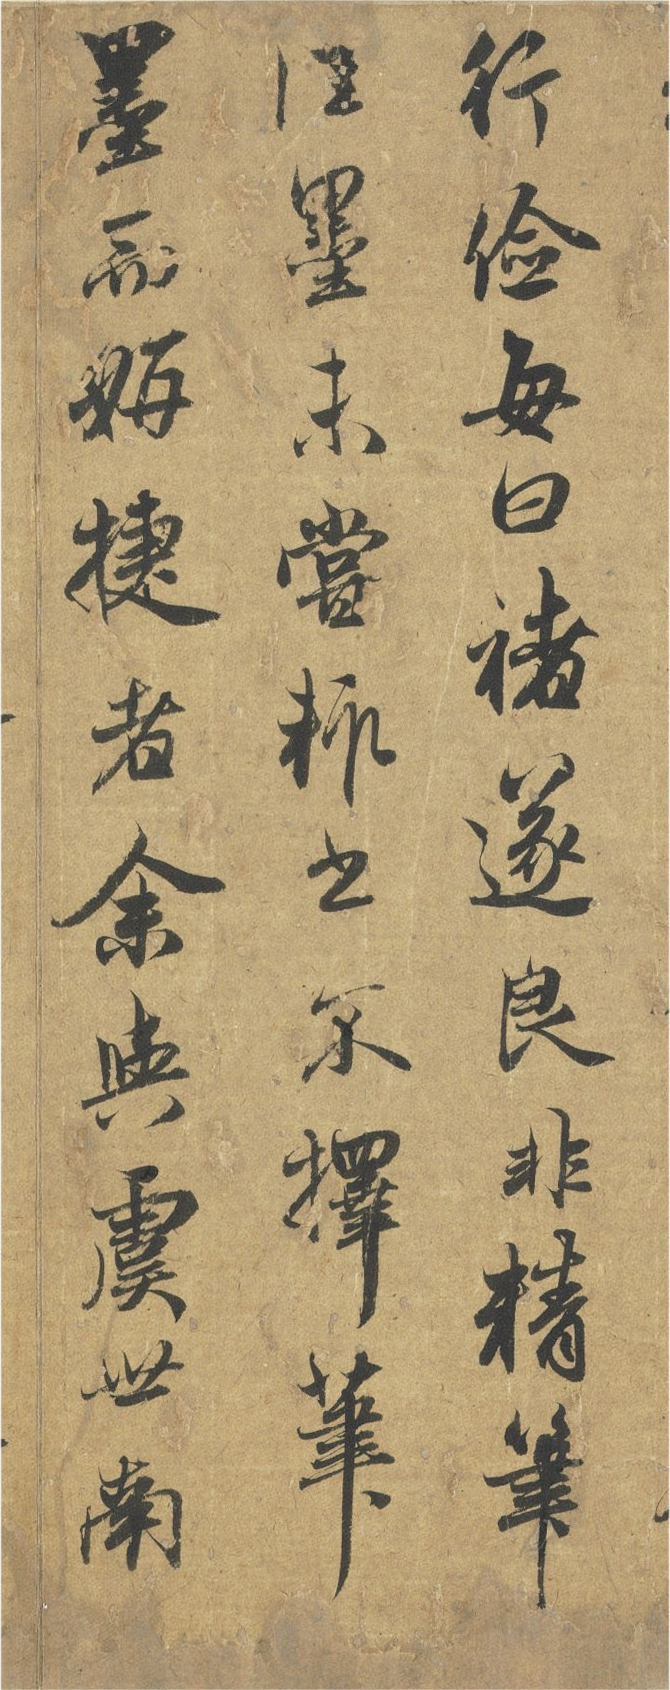 行儉每曰褚遂良非精筆
佳墨未嘗輒書不擇筆
墨而妍捷者余與虞世南